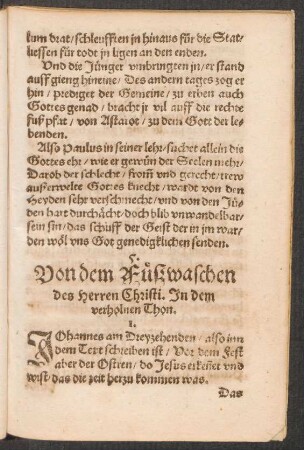 lum drat / schleufften jn hinaus für die Stat /
liessen für todt jn ligen an den enden.
Und die Jünger vmbringten jn / er stand
auff gieng hineine / Des andern tages zog er
hin / prediget der Gemeine / zu erben auch
Gottes genad / bracht jr vil auff die rechte
fuß pfat / von Astarot / zu dem Gott der le-
benden.
Also Paulus in seiner lehr / suchet allein die
Gottes ehr / wie er gewün der Seelen mehr /
Darob der schlecht / from̃ vnd gerecht / trew
ausserwelte Gottes knecht / wardt von den
Heyden sehr verschmecht / vnd von den Jü-
den hart durchächt / doch blib vnwandelbar /
sein sin / das schuff der Geist der in jm war /
den wöl vns Got genediglichen senden.
5.
Von dem Fůßwaschen
des Herren Christi. In dem
verholnen Thon.
1.
IOhannes am Dreyzehenden / also inn
dem Text schreiben ist / Vor dem Fest
aber der Ostren / do Jesus erkeñet vnd
wist / das die zeit herzu kommen was.
Das